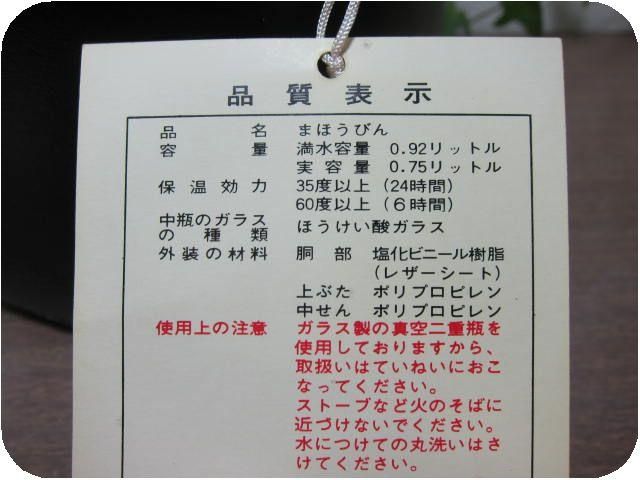 品質表示
品名 まほうびん
容量 満水容量 0.92リットル
実容量 0.75リットル
保温効力 35度以上(24時間)
60度以上(6時間)
中瓶のガラスの種類 ほうけい酸ガラス
外装の材料 胴部 塩化ビニール樹脂
(レザーシート)
上ぶた ポリプロピレン
中せん ポリプロピレン
使用上の注意 ガラス製の真空二重瓶を
使用しておりますから、
取扱いはていねいにおこ
なってください。
ストーブなど火のそばに
近づけないでください。
水につけての丸洗いはさ
けてください。